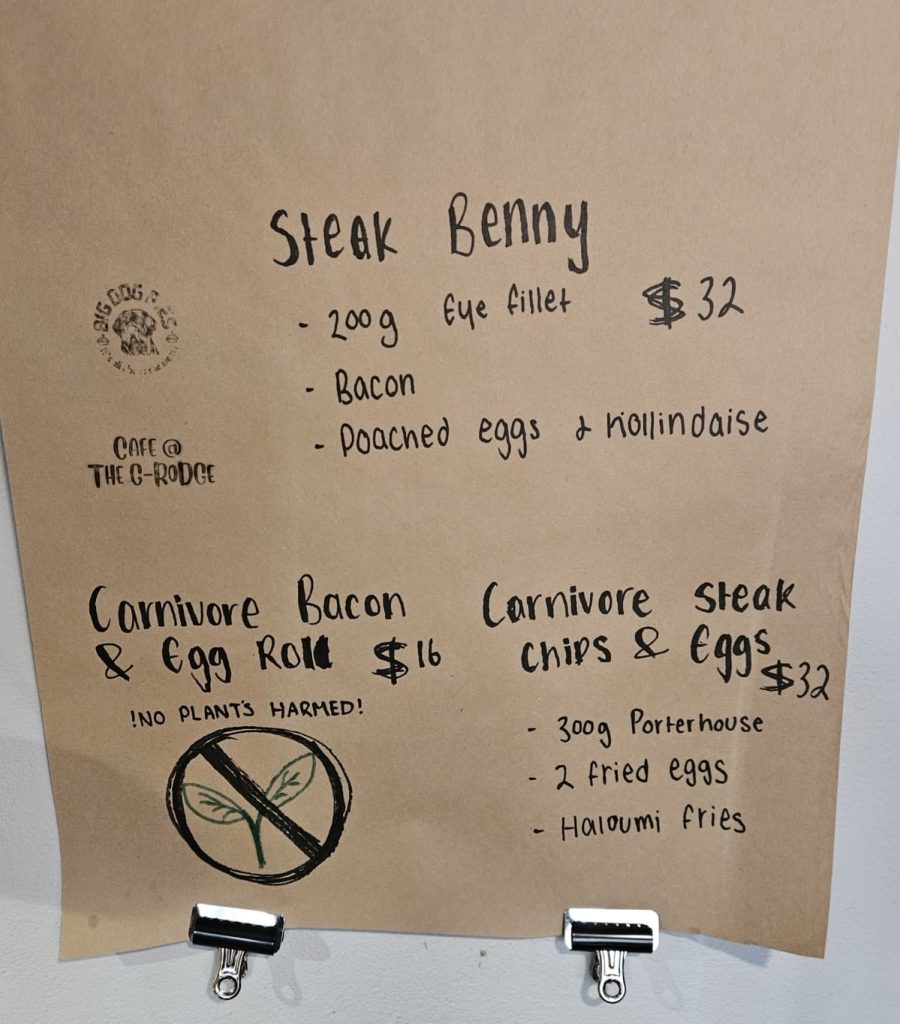 Steak Benny
- 200g Eye fillet $32
- Bacon
- Poached eggs & Hollindaise
BIG DOG PIES
CAFE @
THE G-RODGE
Carnivore Bacon
& Egg Roll $16
!NO PLANT'S HARMED!
Carnivore Steak
Chips & Eggs
$32
- 300g Porterhouse
- 2 fried eggs
- Haloumi fries